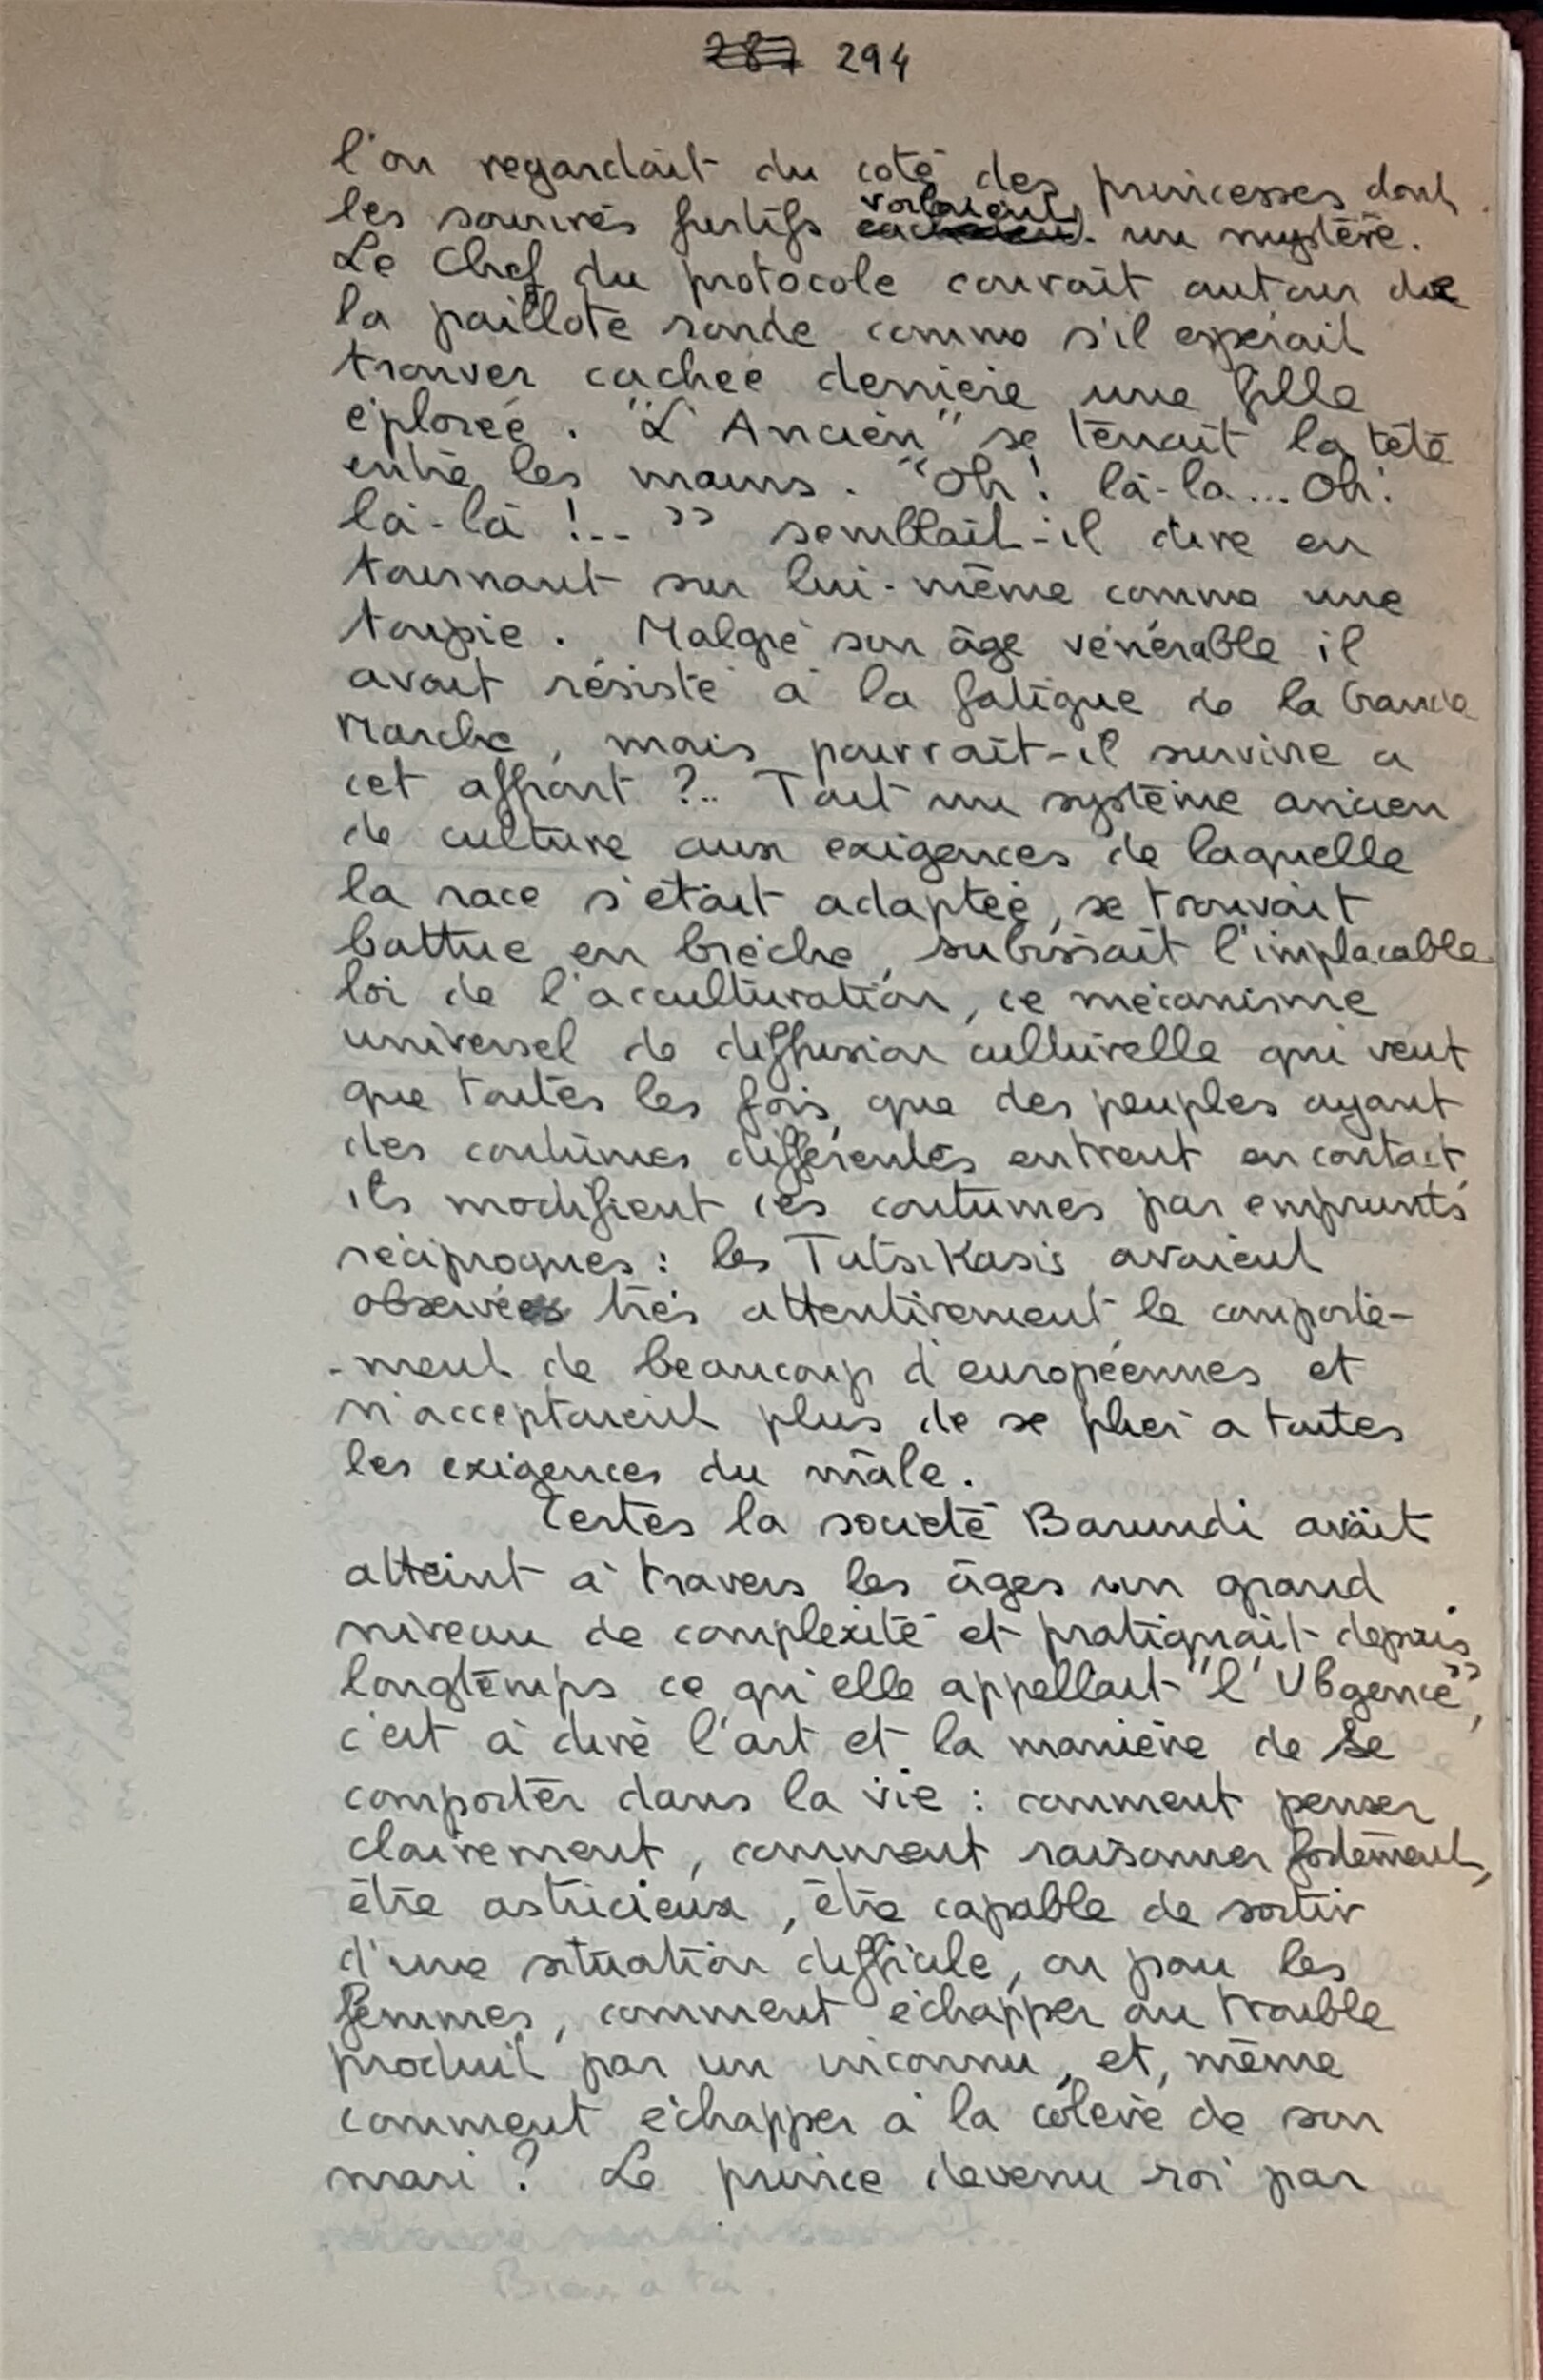 287 294
l'on regardait du coté des princesses dont
les sourires furtifs voilaient un mystère.
Le Chef du protocole courait autour de
la paillote ronde comme s'il espérait
trouver cachée derrière une fille
éplorée. "L'Ancien" se tenait la tête
entre les mains. "Oh! là-la... Oh!
là-là !.. " semblait-il dire en
tournant sur lui-même comme une
toupie. Malgré son âge vénérable il
avait résisté à la fatigue de la Grande
Marche, mais pourrait-il survivre a
cet affront ?.. Tout un système ancien
de culture aux exigences de laquelle
la race s'était adaptée, se trouvait
battue en brèche, subissait l'implacable
loi de l'acculturation, ce mécanisme
universel de diffusion culturelle qui veut
que toutes les fois que des peuples ayant
des coutumes différentes entrent en contact
ils modifient ces coutumes par emprunts
réciproques : les TutsiKasis avaient
observées très attentivement le comporte-
-ment de beaucoup d'européennes et
n'acceptaient plus de se plier a toutes
les exigences du mâle.
Certes la société Barundi avait
atteint à travers les âges un grand
niveau de complexité et pratiquait depuis
longtemps ce qu'elle appellait "l'Ubgence",
c'est à dire l'art et la manière de se
comporter dans la vie : comment penser
clairement, comment raisonner fortement,
être astucieux, être capable de sortir
d'une situation difficile, ou pour les
femmes, comment échapper au trouble
produit par un inconnu, et, même
comment échapper à la colère de son
mari ? Le prince devenu roi par